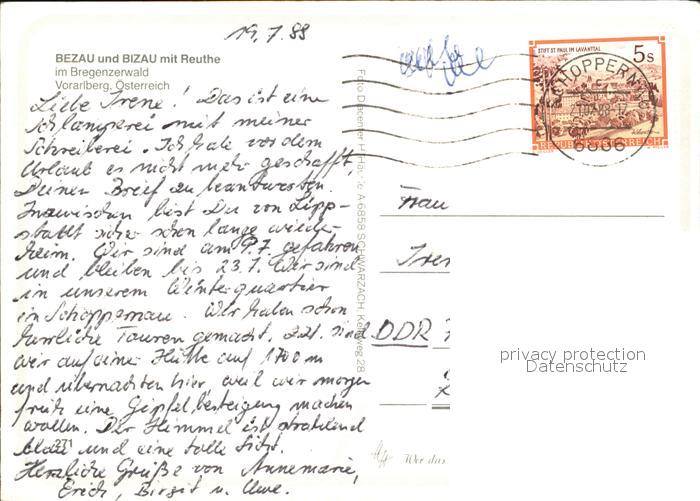 19.7.88
BEZAU und BIZAU mit Reuthe
im Bregenzerwald
Vorarlberg, Österreich
Liebe Irene! Das ist eine
Schlamperei mit meiner
Schreiberei. Ich habe vor dem
Urlaub es nicht mehr geschafft,
Deinen Brief zu beantworten.
Inzwischen bist Du von Lipp-
stadt sicher schon lange wieder
heim. Wir sind am 9.7. gefahren
und bleiben bis 23.7. Wir sind
in unserem Winterquartier
in Schoppernau. Wir haben schon
herrliche Touren gemacht. z.Zt. sind
wir auf einer Hütte auf 1700 m
und übernachten hier, weil wir morgen
früh eine Gipfelbesteigung machen
wollen. Der Himmel ist strahlend
blau und eine tolle Sicht.
Herzliche Grüße von Annemarie,
Erich, Birgit u. Uwe.
A-6858 SCHWARZACH
28
STIFT ST. PAUL IM LAVANTTAL
5s
REPUBLIK ÖSTERREICH
SCHOPPERNAU
6886
Frau
DDR
Wer das
privacy protection
Datenschutz